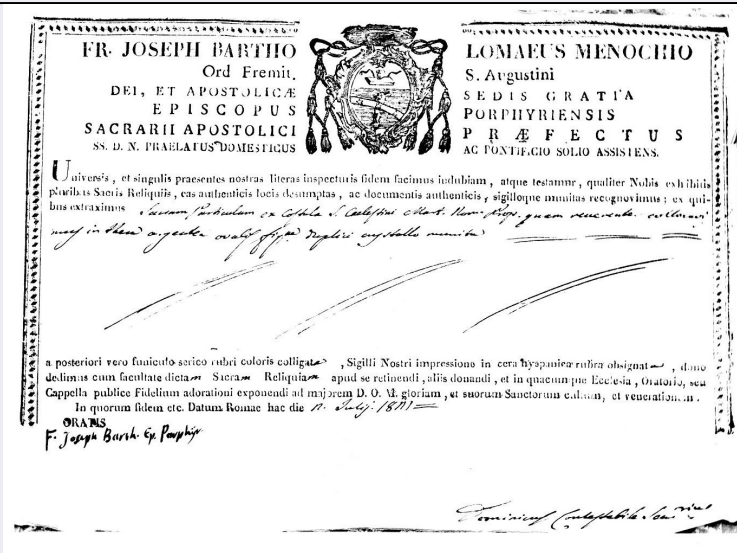 FR. JOSEPH BARTHO LOMAEUS MENOCHIO
Ord Fremit. S. Augustini
DEI, ET APOSTOLICÆ SEDIS GRATIA
EPISCOPUS PORPHYRIENSIS
SACRARII APOSTOLICI PRÆFECTUS
SS. D. N. PRAELATUS DOMESTICUS AC PONTIFICIO SOLIO ASSISTENS.
Universis, et singulis praesentes nostras literas inspecturis fidem facimus indubiam, atque testamur, qualiter Nobis exhibitis
pluribus Sacris Reliquiis, eas authenticis locis desumptas, ac documentis authenticis, sigilloque munitas recognovimus; ex qui-
bus extraximus Sacram Particulam ex Costula S. Caelestini Mart. quam reverenter collocavi
mus in theca argentea duplici crystallo munita
a posteriori vero funiculo serico rubri coloris colligata, Sigilli Nostri impressione in cera hyspanica rubra obsignata, dono
dedimus cum facultate dictam Sacram Reliquiam apud se retinendi, aliis donandi, et in quacumque Ecclesia, Oratorio, seu
Cappella publice Fidelium adorationi exponendi ad majorem D. O. M. gloriam, et suorum Sanctorum cultum, et venerationem.
In quorum fidem etc. Datum Romae hac die July
GRATIS
F. Joseph Barth. Ep. Porphyr.
Dominicus Contestabile